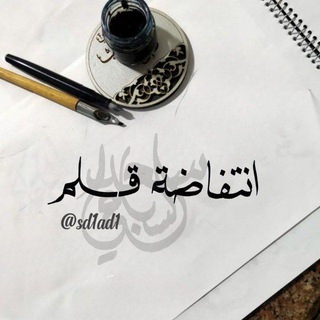 انتفاضة قلم
@sd1ad1